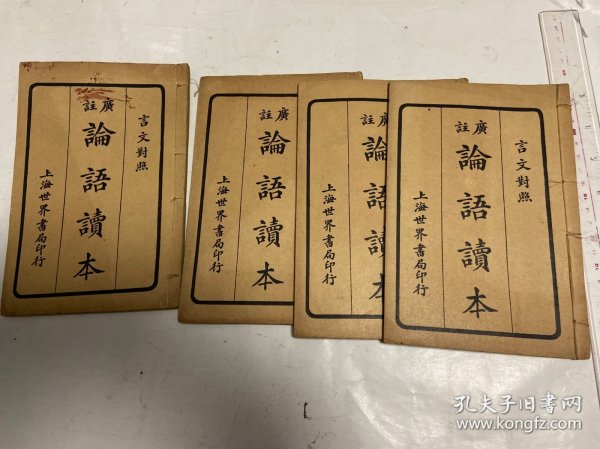 言文對照
廣註
論語讀本
上海世界書局印行
廣註
論語讀本
上海世界書局印行
廣註
論語讀本
上海世界書局印行
言文對照
廣註
論語讀本
上海世界書局印行
孔夫子旧书网
www.kongfz.com